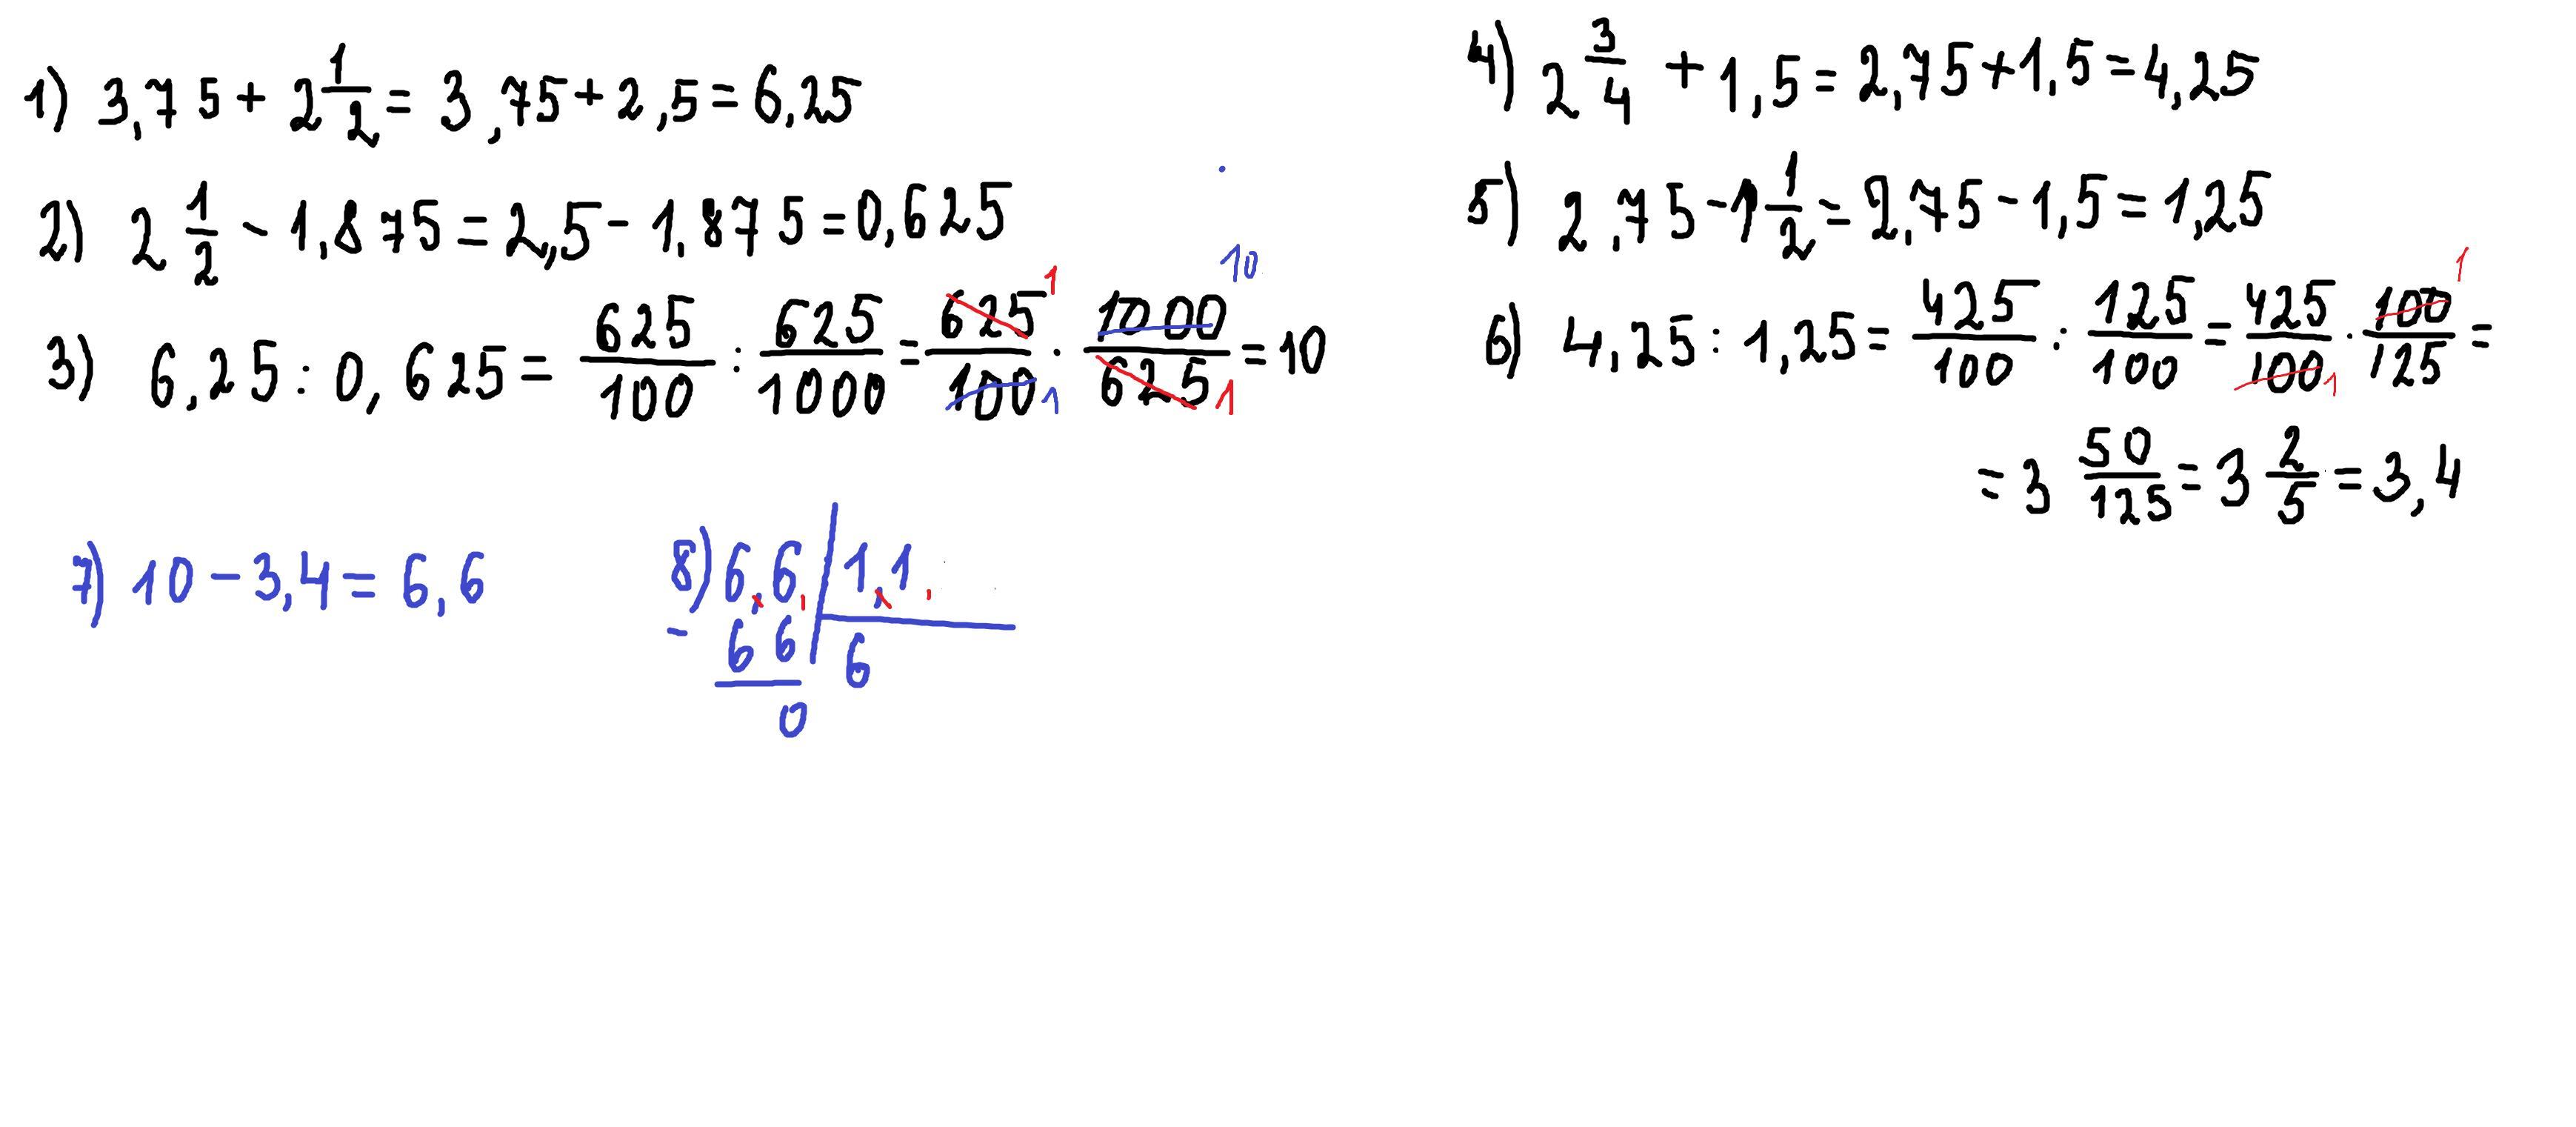 1) 3,75 + 2 1/2 = 3,75 + 2,5 = 6,25
2) 2 1/2 - 1,875 = 2,5 - 1,875 = 0,625
3) 6,25 : 0,625 = 625/100 : 625/1000 = 625/100 · 1000/625 = 10
1 10 1 1
4) 2 3/4 + 1,5 = 2,75 + 1,5 = 4,25
5) 2,75 - 1 1/2 = 2,75 - 1,5 = 1,25
6) 4,25 : 1,25 = 425/100 : 125/100 = 425/100 · 100/125 =
1 1
= 3 50/125 = 3 2/5 = 3,4
7) 10 - 3,4 = 6,6
8) 6,6, | 1,1,
- 66 | 6
0